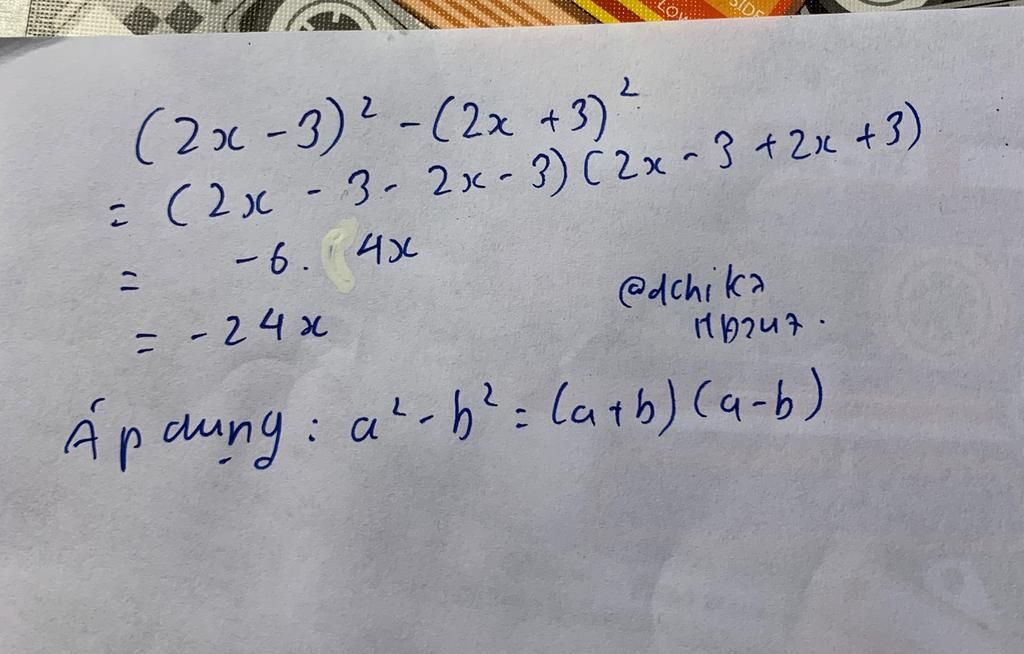 LOW
SIDE
(2x - 3)² - (2x + 3)²
= (2x - 3 - 2x - 3)(2x - 3 + 2x + 3)
= -6. 4x
= -24x
@dchika
Áp dụng : a² - b² = (a+b)(a-b)